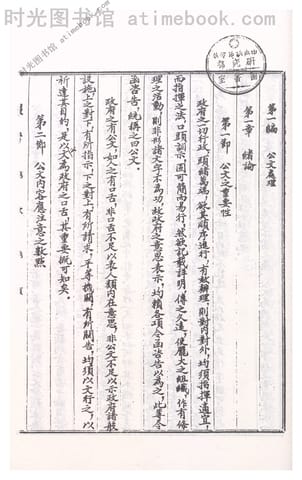 时光图书馆 atimebook.com
第一編 公文處理
第一章 緒論
第一節 公文之重要性
政府之切行政，頭緒萬端，欲其順序進行，有效辦理，則對內對外，均須指揮適宜，
而指揮之法，口頭訓示，固可簡而易行，然欲記載詳明，傳之久遠，使龐大之組織，作有條
理之活動，則非形諸文字不為功，故政府之意思表示，均賴各項令函咨告以為之，此等令
函咨告，統稱之曰公文。
政府之有公文，如人之有口舌，非口舌不足以表人類內在意思，非公文不足以示政府諸般
設施，上之對下，有所指示，下之對上，有所請求，平等機關，有所關告，均須以文行之，以
祈達其目的，是以文為政府之口舌，其重要概可知矣。
第二節 公文內容應注意之數點
时光图书馆 atimebook.com